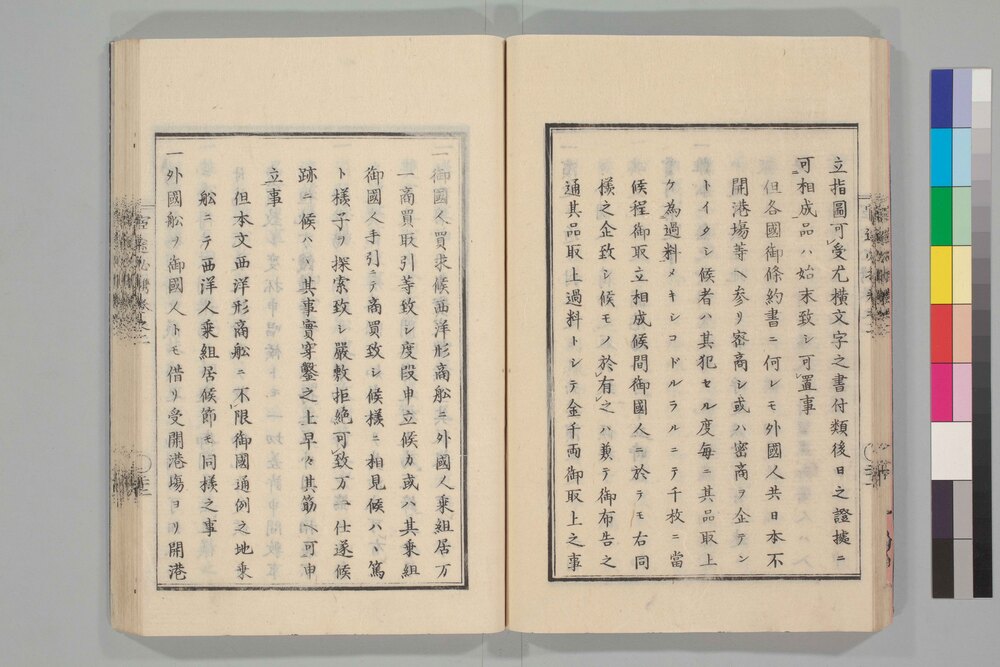 立指圖可受尤橫文字之書付類後日之證據ニ
可相成品ハ始末致シ可置事
但各國御條約書ニ何レモ外國人共日本不
開港場等ヘ參リ密商シ或ハ密商ヲ企テン
トイタシ候者ハ其犯セル度每ニ其品取上
ケ為過料メキシコドルラルニテ千枚ニ當
候程御取立相成候間御國人ニ於テモ右同
樣之企致シ候モノ於有之ハ兼テ御布告之
通其品取上過料トシテ金千両御取上之事
一御國人買求候西洋形商船ニ外國人乗組居方
一商買取引等致シ度段申立候カ或ハ其乗組
御國人手引ニテ商買致シ候樣ニ相見候ハヽ篤
ト樣子ヲ探索致シ嚴敷拒絶可致万一仕遂候
跡ニ候ハヽ其事實穿鑿之上早々其筋ヘ可申
立事
但本文西洋形商船ニ不限御國通例之地乗
船ニテ西洋人乗組居候節モ同樣之事
一外國船ヲ御國人トモ借リ受開港場ヨリ開港